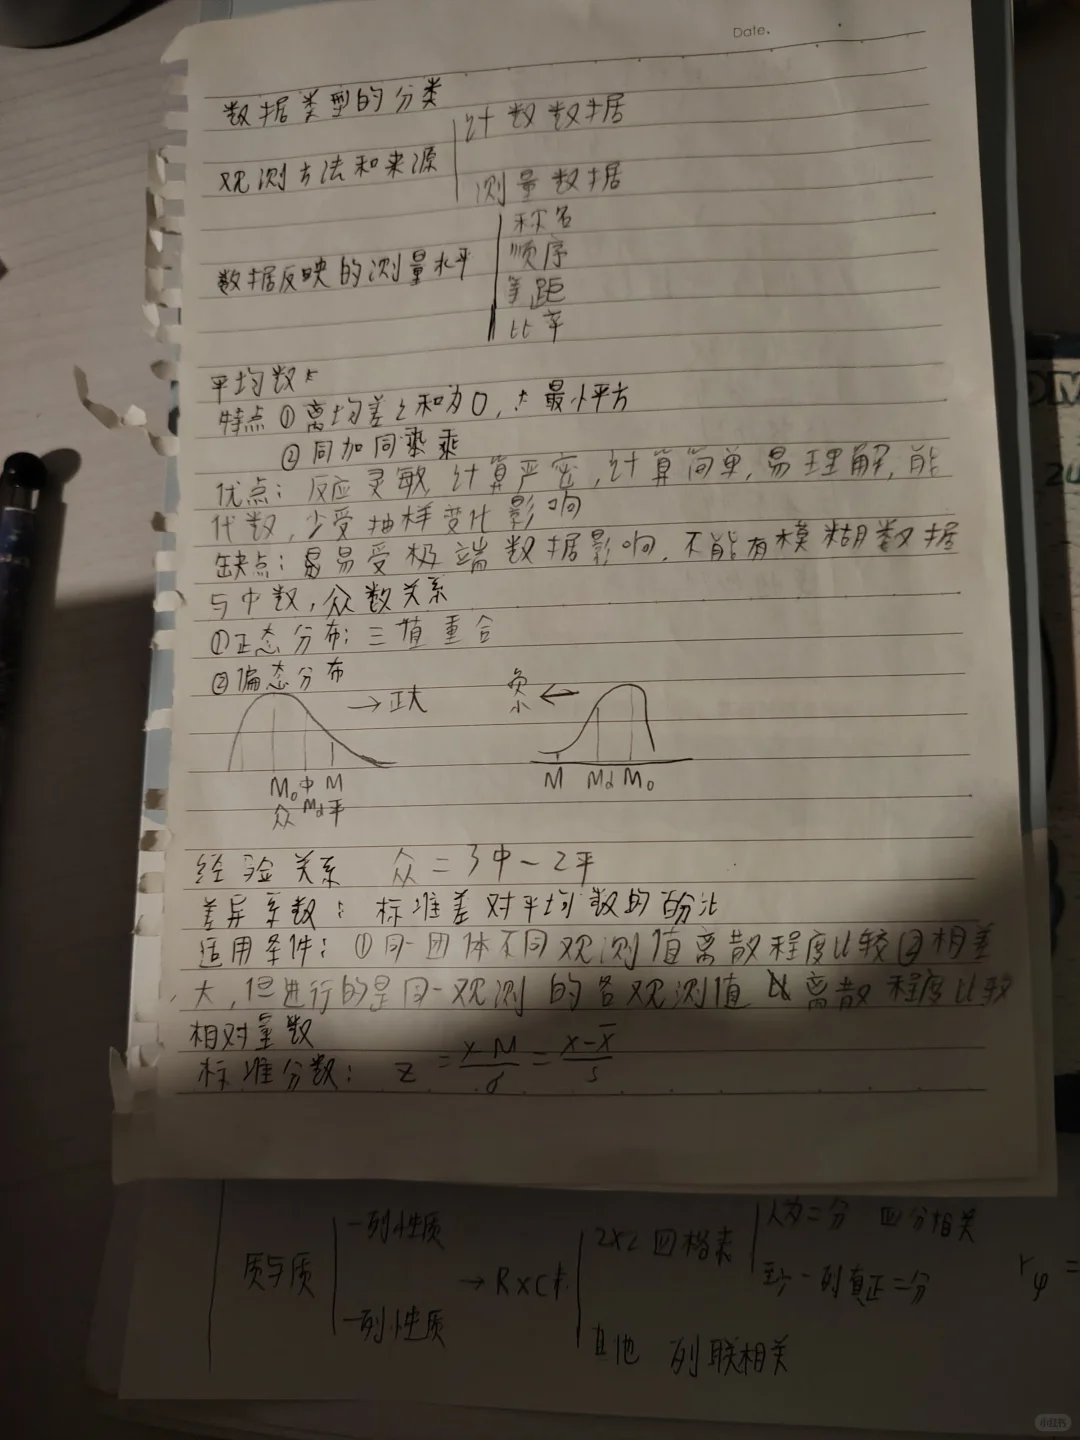 Date.
数据类型的分类
观测方法和来源
计数数据
测量数据
数据反映的测量水平
称名
顺序
等距
比率
平均数
特点 ① 离均差之和为0, 最小平方
② 同加同乘乘
优点: 反应灵敏 计算严密, 计算简单, 易理解, 能
代数, 少受抽样变化影响
缺点: 易受极端数据影响, 不能有模糊数据
与中数, 众数关系
①正态分布: 三值重合
②偏态分布
→ 正大
负 ←
小
M₀ 中 M
众 Md 平
M Md M₀
经验关系 众 = 3中 - 2平
差异系数: 标准差对平均数的百分比
适用条件: ①同一团体不同观测值离散程度比较②相差
大, 但进行的是同一观测的各观测值离散程度比较
相对量数
标准分数: Z = X-M/σ = X-X̄/S
质与质
一列性质
一列性质
→ R×C表
2×2 四格表
人为二分 四分相关
至少一列真正二分
rφ =
其他 列联相关
小红书